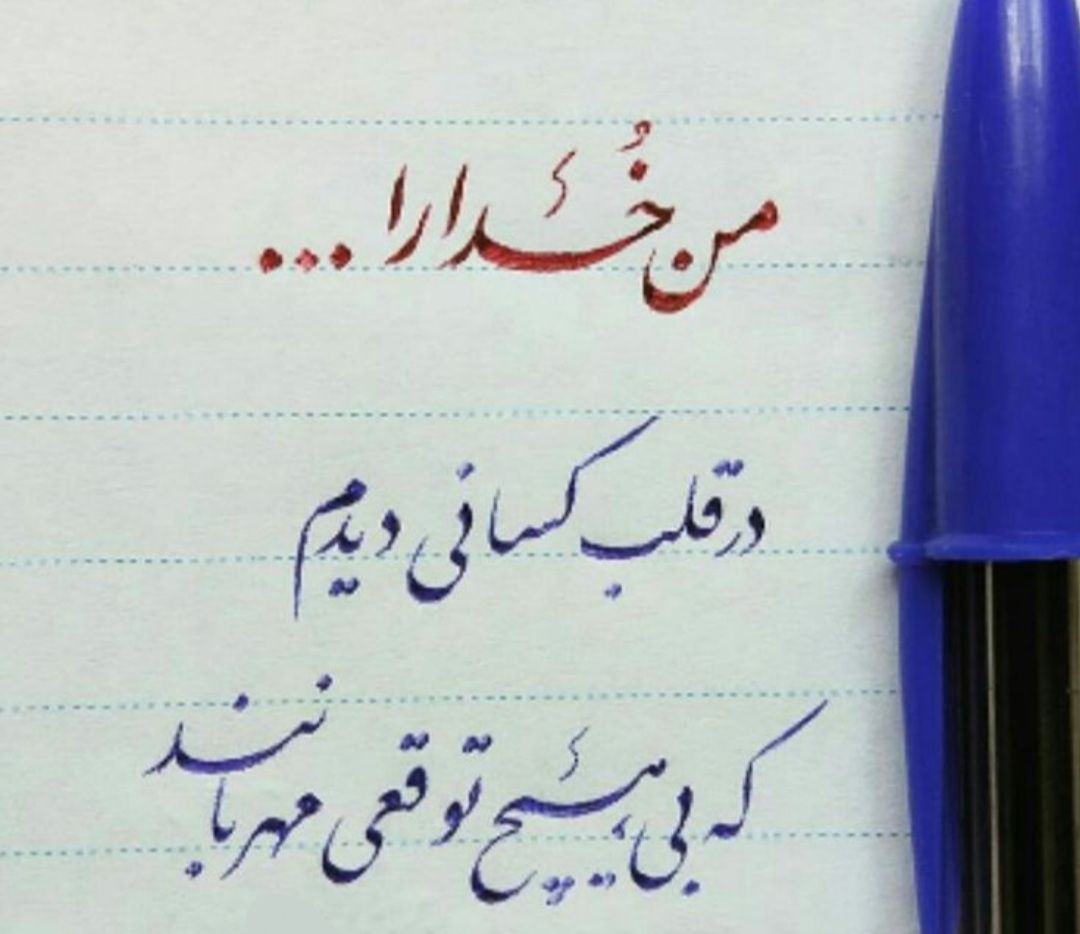 من خُدا را...
در قلب کسانی دیدم
که بی هیچ توقعی مهربانند